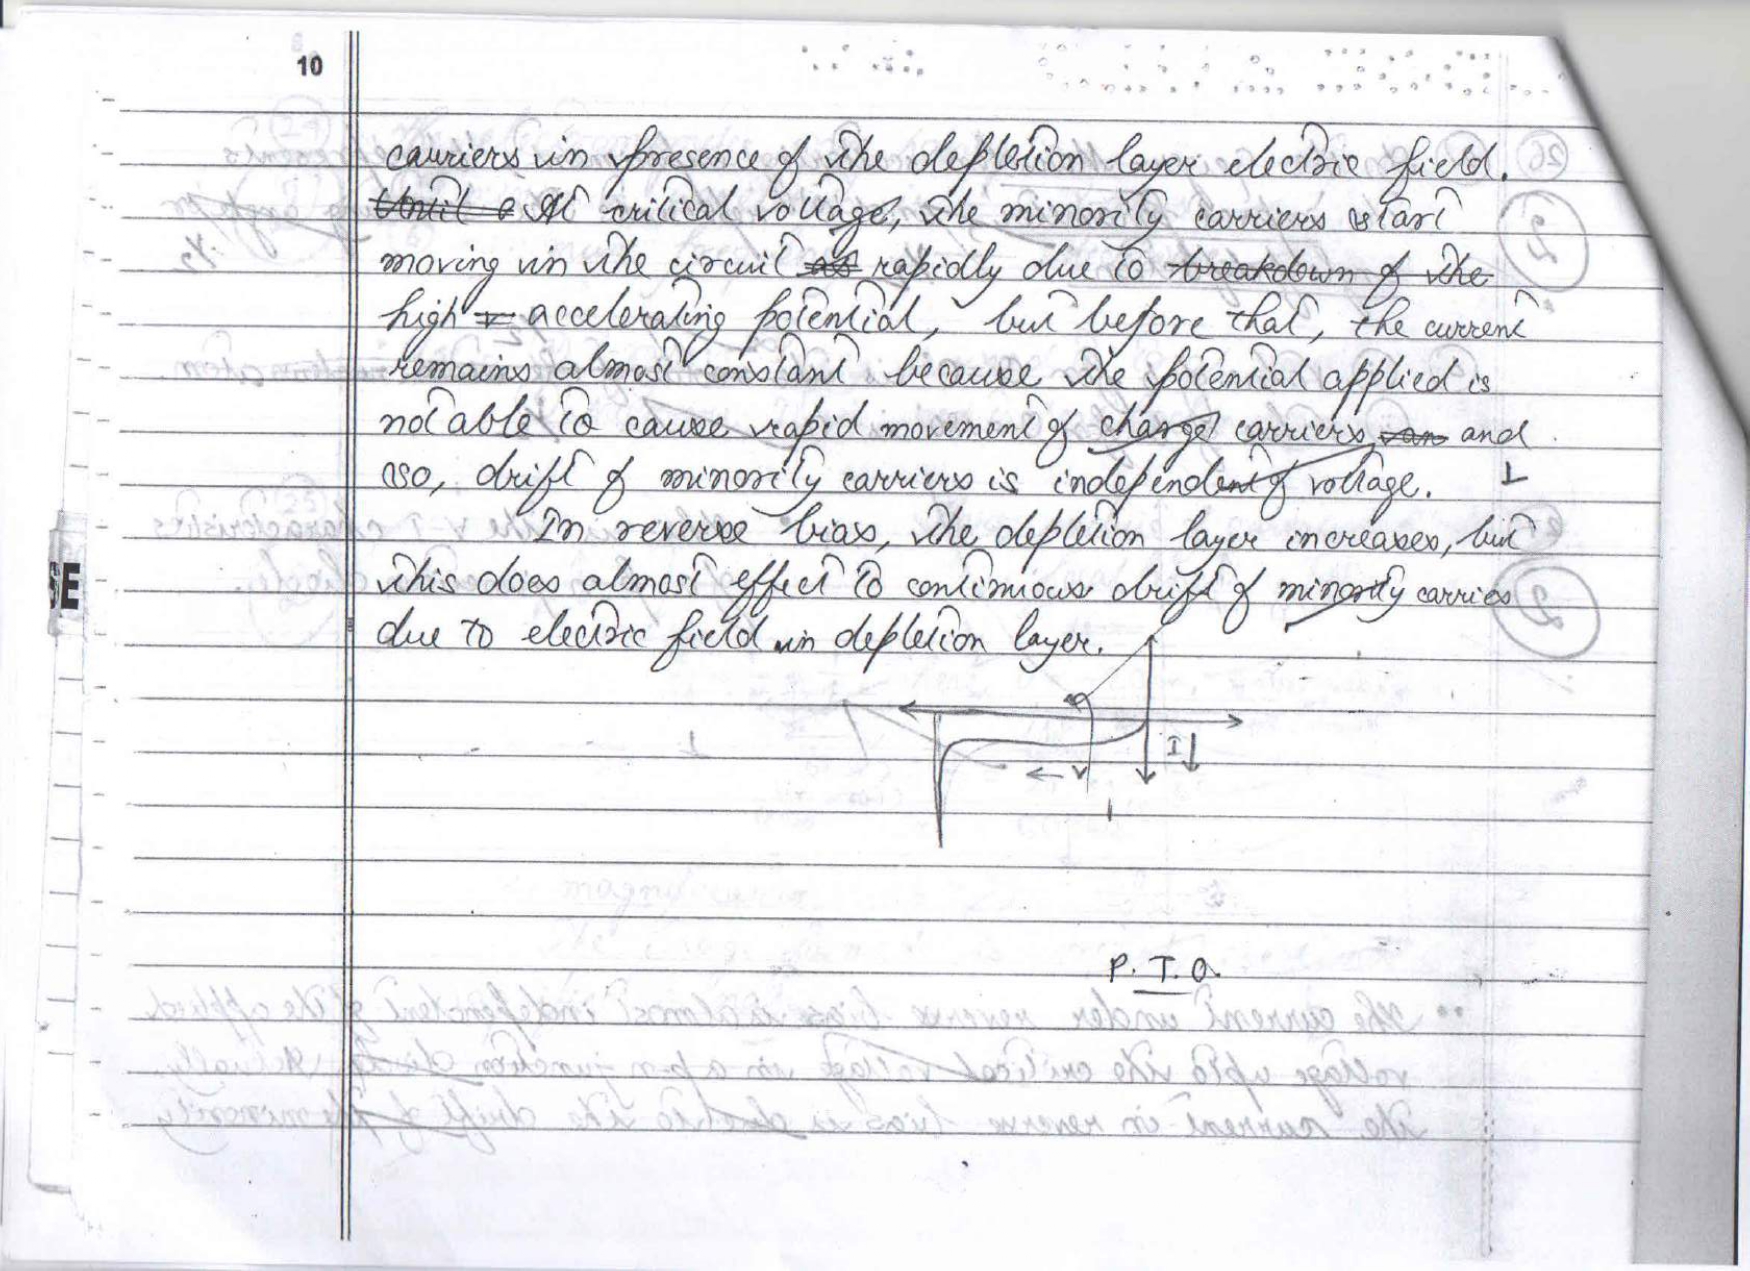 10
carriers in presence of the depletion layer electric field.
Until e At critical voltage, the minority carriers start
moving in the circuit as rapidly due to breakdown of the
high accelerating potential, but before that, the current
remains almost constant because the potential applied is
not able to cause rapid movement of charge carriers, and
so, drift of minority carriers is independent of voltage.
In reverse bias, the depletion layer increases, but
this does almost effect to continuous drift of minority carries
due to electric field in depletion layer.
I
← V
P.T.O.
SE